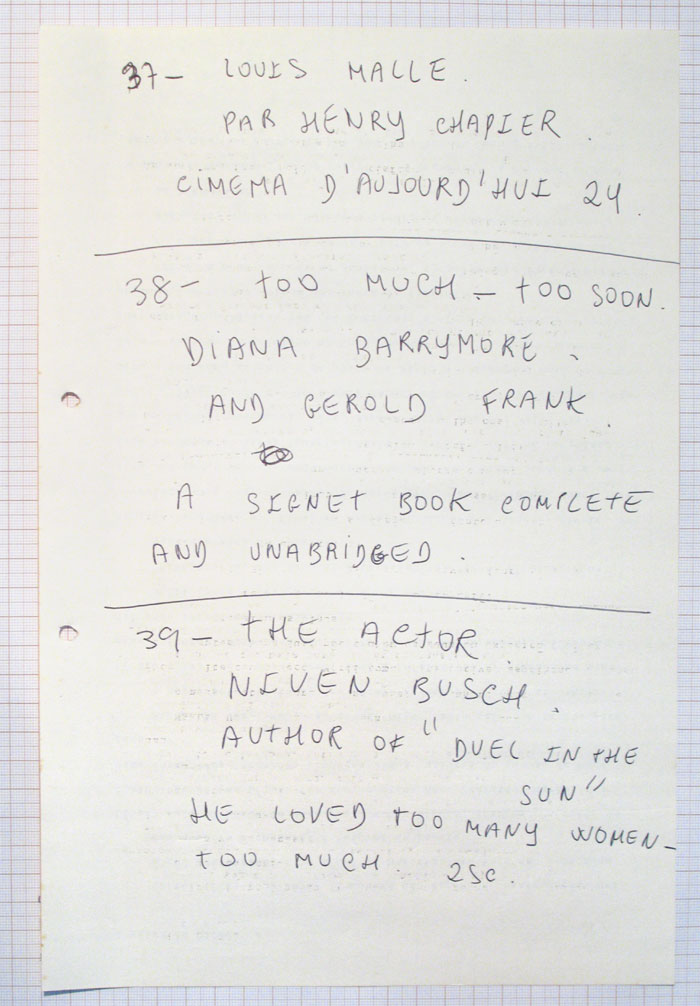 37- LOUIS MALLE.
PAR HENRY CHAPIER.
CINEMA D'AUJOURD'HUI 24.
38- TOO MUCH - TOO SOON.
DIANA BARRYMORE.
AND GEROLD FRANK.
A SIGNET BOOK COMPLETE
AND UNABRIDGED.
39- THE ACTOR.
NIVEN BUSCH.
AUTHOR OF "DUEL IN THE
SUN"
HE LOVED TOO MANY WOMEN-
TOO MUCH. 25c.